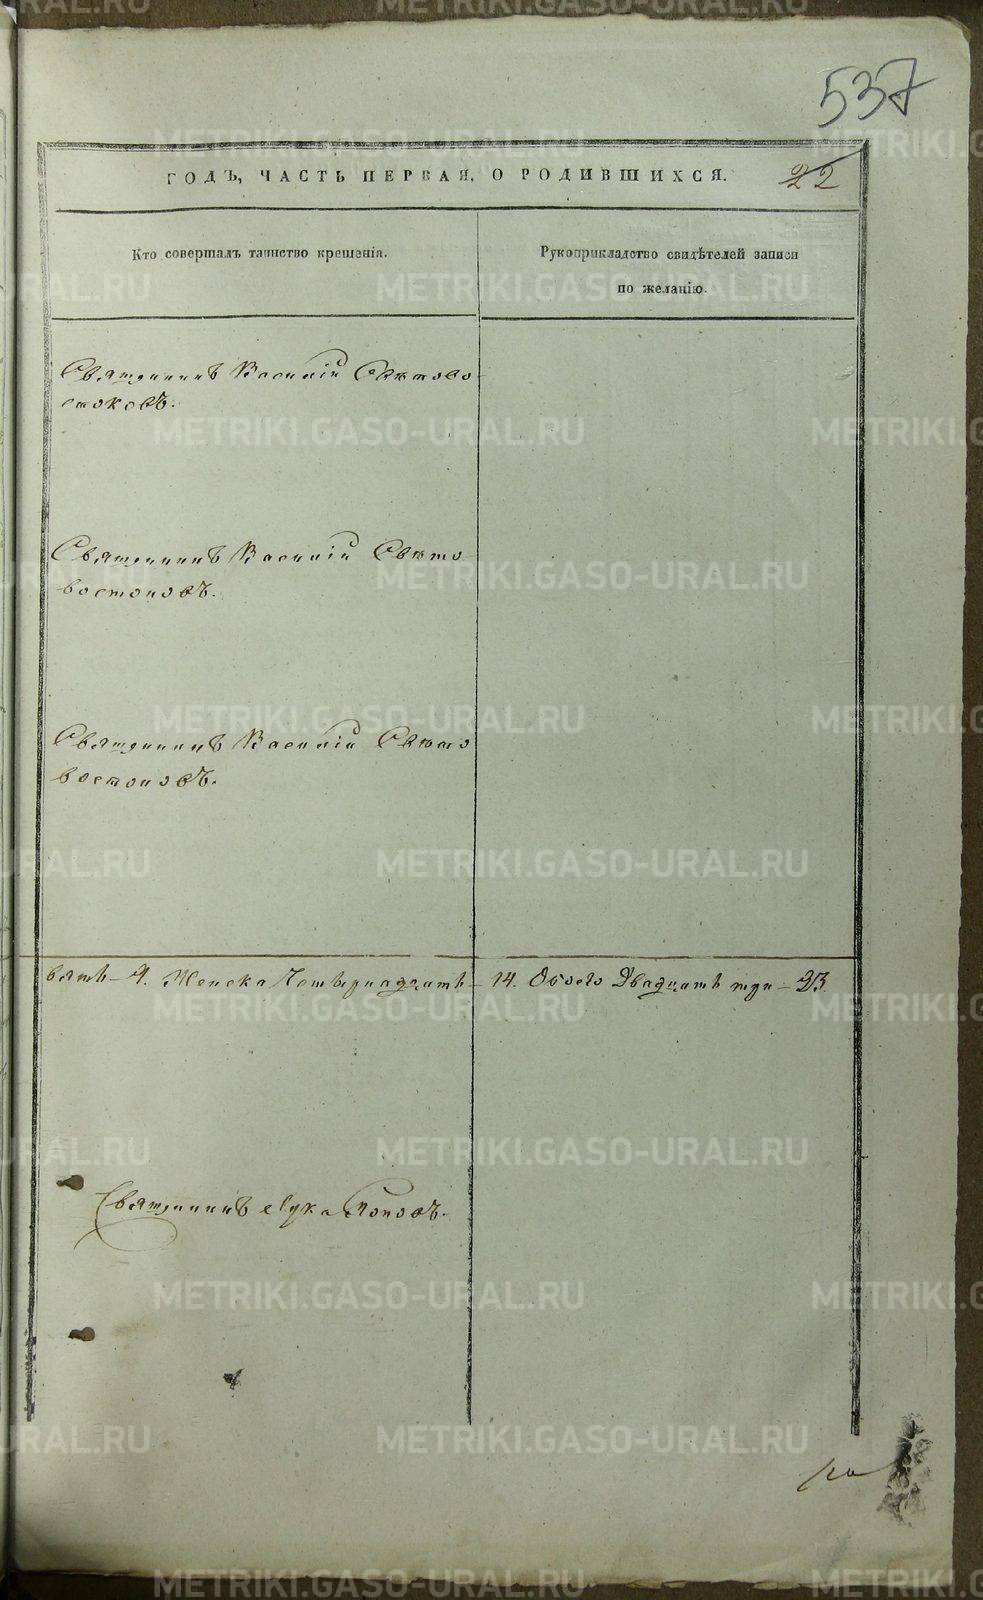 537
ГОДЪ, ЧАСТЬ ПЕРВАЯ, О РОДИВШИХСЯ. 22
Кто совершалъ таинство крещенія.
Рукоприкладство свидѣтелей записи
по желанію.
Священникъ Василій Свѣтово
стоковъ.
Священникъ Василій Свѣто
востоковъ.
Священникъ Василій Свѣто
востоковъ.
вять – 9. Женска Четырнадцать – 14. Обоего Двадцать три – 23
Священникъ Лука Поповъ.
METRIKI.GASO-URAL.RU